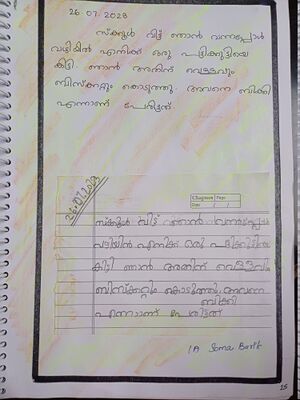 26.07.2023
സ്കൂൾ വിട്ട് ഞാൻ വന്നപ്പോൾ
വഴിയിൽ എനിക്ക് ഒരു പട്ടിക്കുട്ടിയെ
കിട്ടി. ഞാൻ അതിന് വെള്ളവും
ബിസ്ക്കറ്റും കൊടുത്തു. അവനെ ബിക്കി
എന്നാണ് പേരിട്ടത്
26.07.2023
Page
Date
സ്കൂൾ വിട്ട് ഞാൻ വന്നപ്പോ
വഴിയിൽ എനിക്ക് ഒരു
കിട്ടി ഞാൻ അതിന് വെള്ളവും
ബിസ്ക്കറ്റും കൊടുത്തു. അവനെ
ബിക്കി
എന്നാണ് പേരിട്ടത്
1A
15